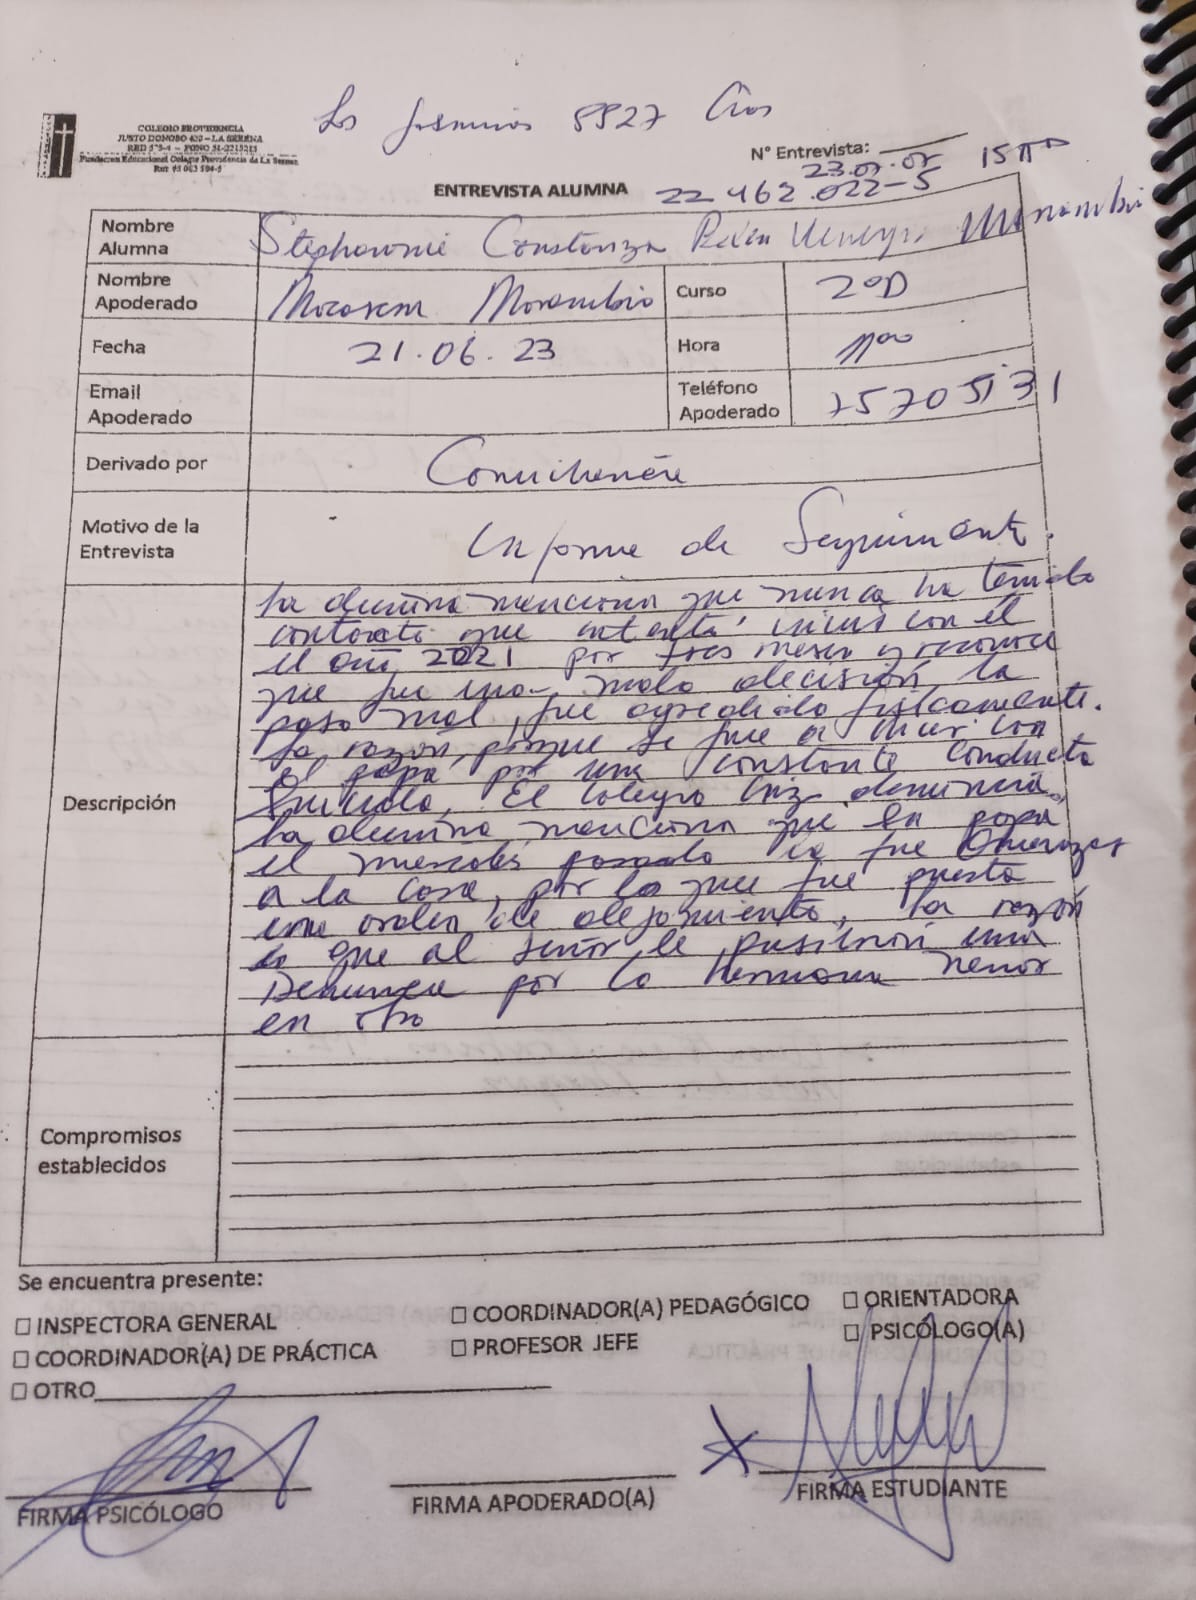 Los Jasminos 5527 Cios
COLEGIO PROVIDENCIA
JUSTO DONOSO 420 – LA SERENA
RBD 575-4 – FONO 51-2215215
Fundacion Educacional Colegio Providencia de La Serena
N° Entrevista:
23.07.07 15
ENTREVISTA ALUMNA 22.462.022-5
Nombre Alumna Stephannie Constanza Belén Venegas Marambio
Nombre Apoderado Marambio Curso 2°D
Fecha 21.06.23 Hora 11:00
Email Apoderado Teléfono Apoderado 75705131
Derivado por Convivencia
Motivo de la Entrevista Informe de Seguimiento.
Descripción
La alumna menciona que nunca ha tenido
contacto que intentó vivir con él
el año 2021 por tres meses y reconoce
que fue una mala decisión, la
paso mal, fue agredida físicamente.
La razón, porque se fue a vivir con
el papá por una constante conducta
suicida. El colegio hizo denuncia.
La alumna menciona que el papá
el miercoles pasado la fue amenazar
a la casa, por lo que fue puesta
una orden de alejamiento, la razón
es que al señor le pusieron una
Denuncia por la Hermana menor
en otro
Compromisos establecidos
Se encuentra presente:
☐ INSPECTORA GENERAL ☐ COORDINADOR(A) PEDAGÓGICO ☐ ORIENTADORA
☐ COORDINADOR(A) DE PRÁCTICA ☐ PROFESOR JEFE ☐ PSICÓLOGO(A)
☐ OTRO
FIRMA PSICÓLOGO FIRMA APODERADO(A) FIRMA ESTUDIANTE